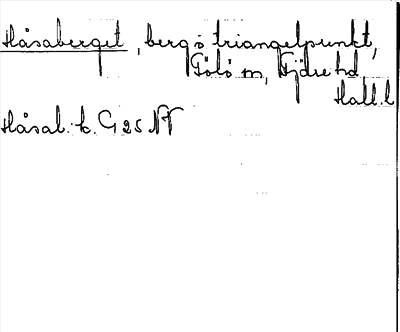 Håsaberget, berg o triangelpunkt,
Fjäre hd
Hall. l
Håsab. k. G 25 NV